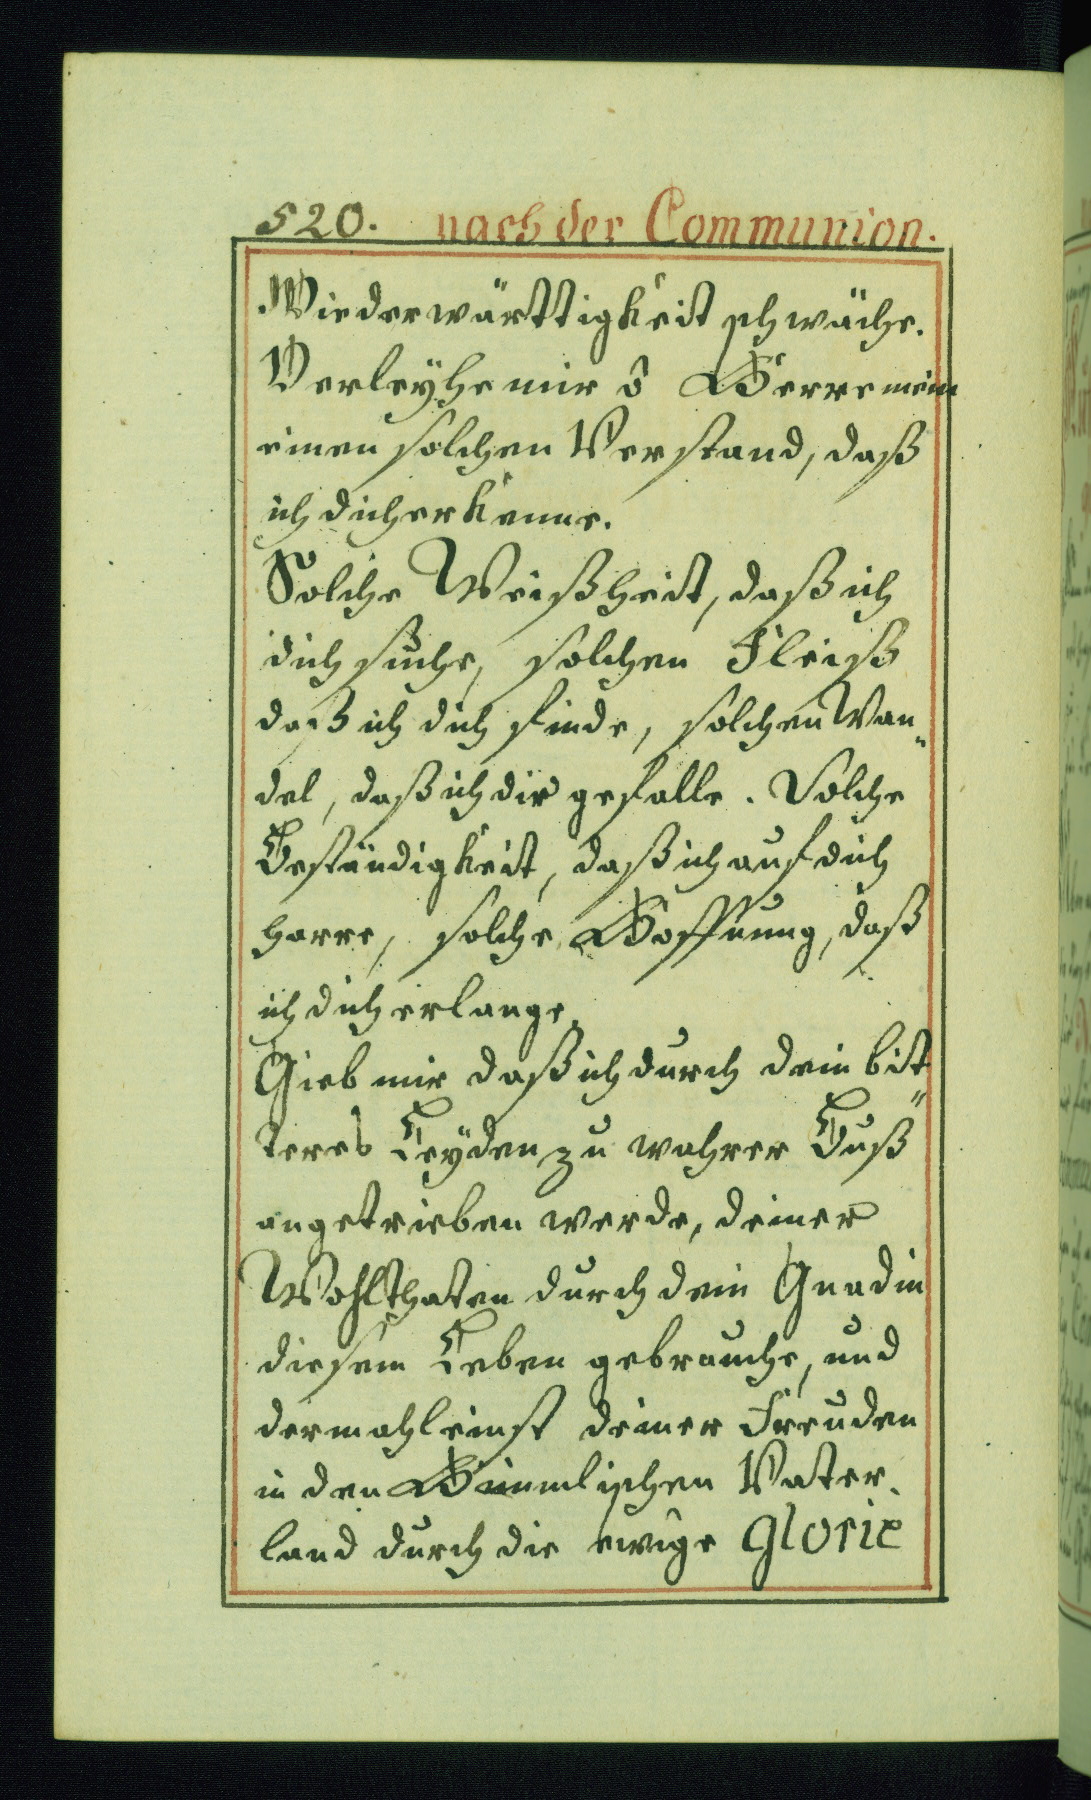 520. nach der Communion.
Wiederwärttigkeit schwäche.
Verleÿhe mir ô Herre mein
einen solchen Verstand, daß
ich dich erkenne.
Solche Weißheit, daß ich
dich suche, solchen Fleiß
daß ich dich finde, solchen Wan„
del, daß ich dir gefalle. Solche
Beständigkeit, daß ich auf dich
harre, solche Hoffnung, daß
ich dich erlange.
Gieb mir daß ich durch dein bit„
teres Leÿden zu wahrer Buß
angetrieben werde, deiner
Wohlthaten durch dein Gnad in
diesem Leben gebrauche, und
dermahleinst deiner Freuden
in den Himmlischen Vater„
land durch die ewige Glorie